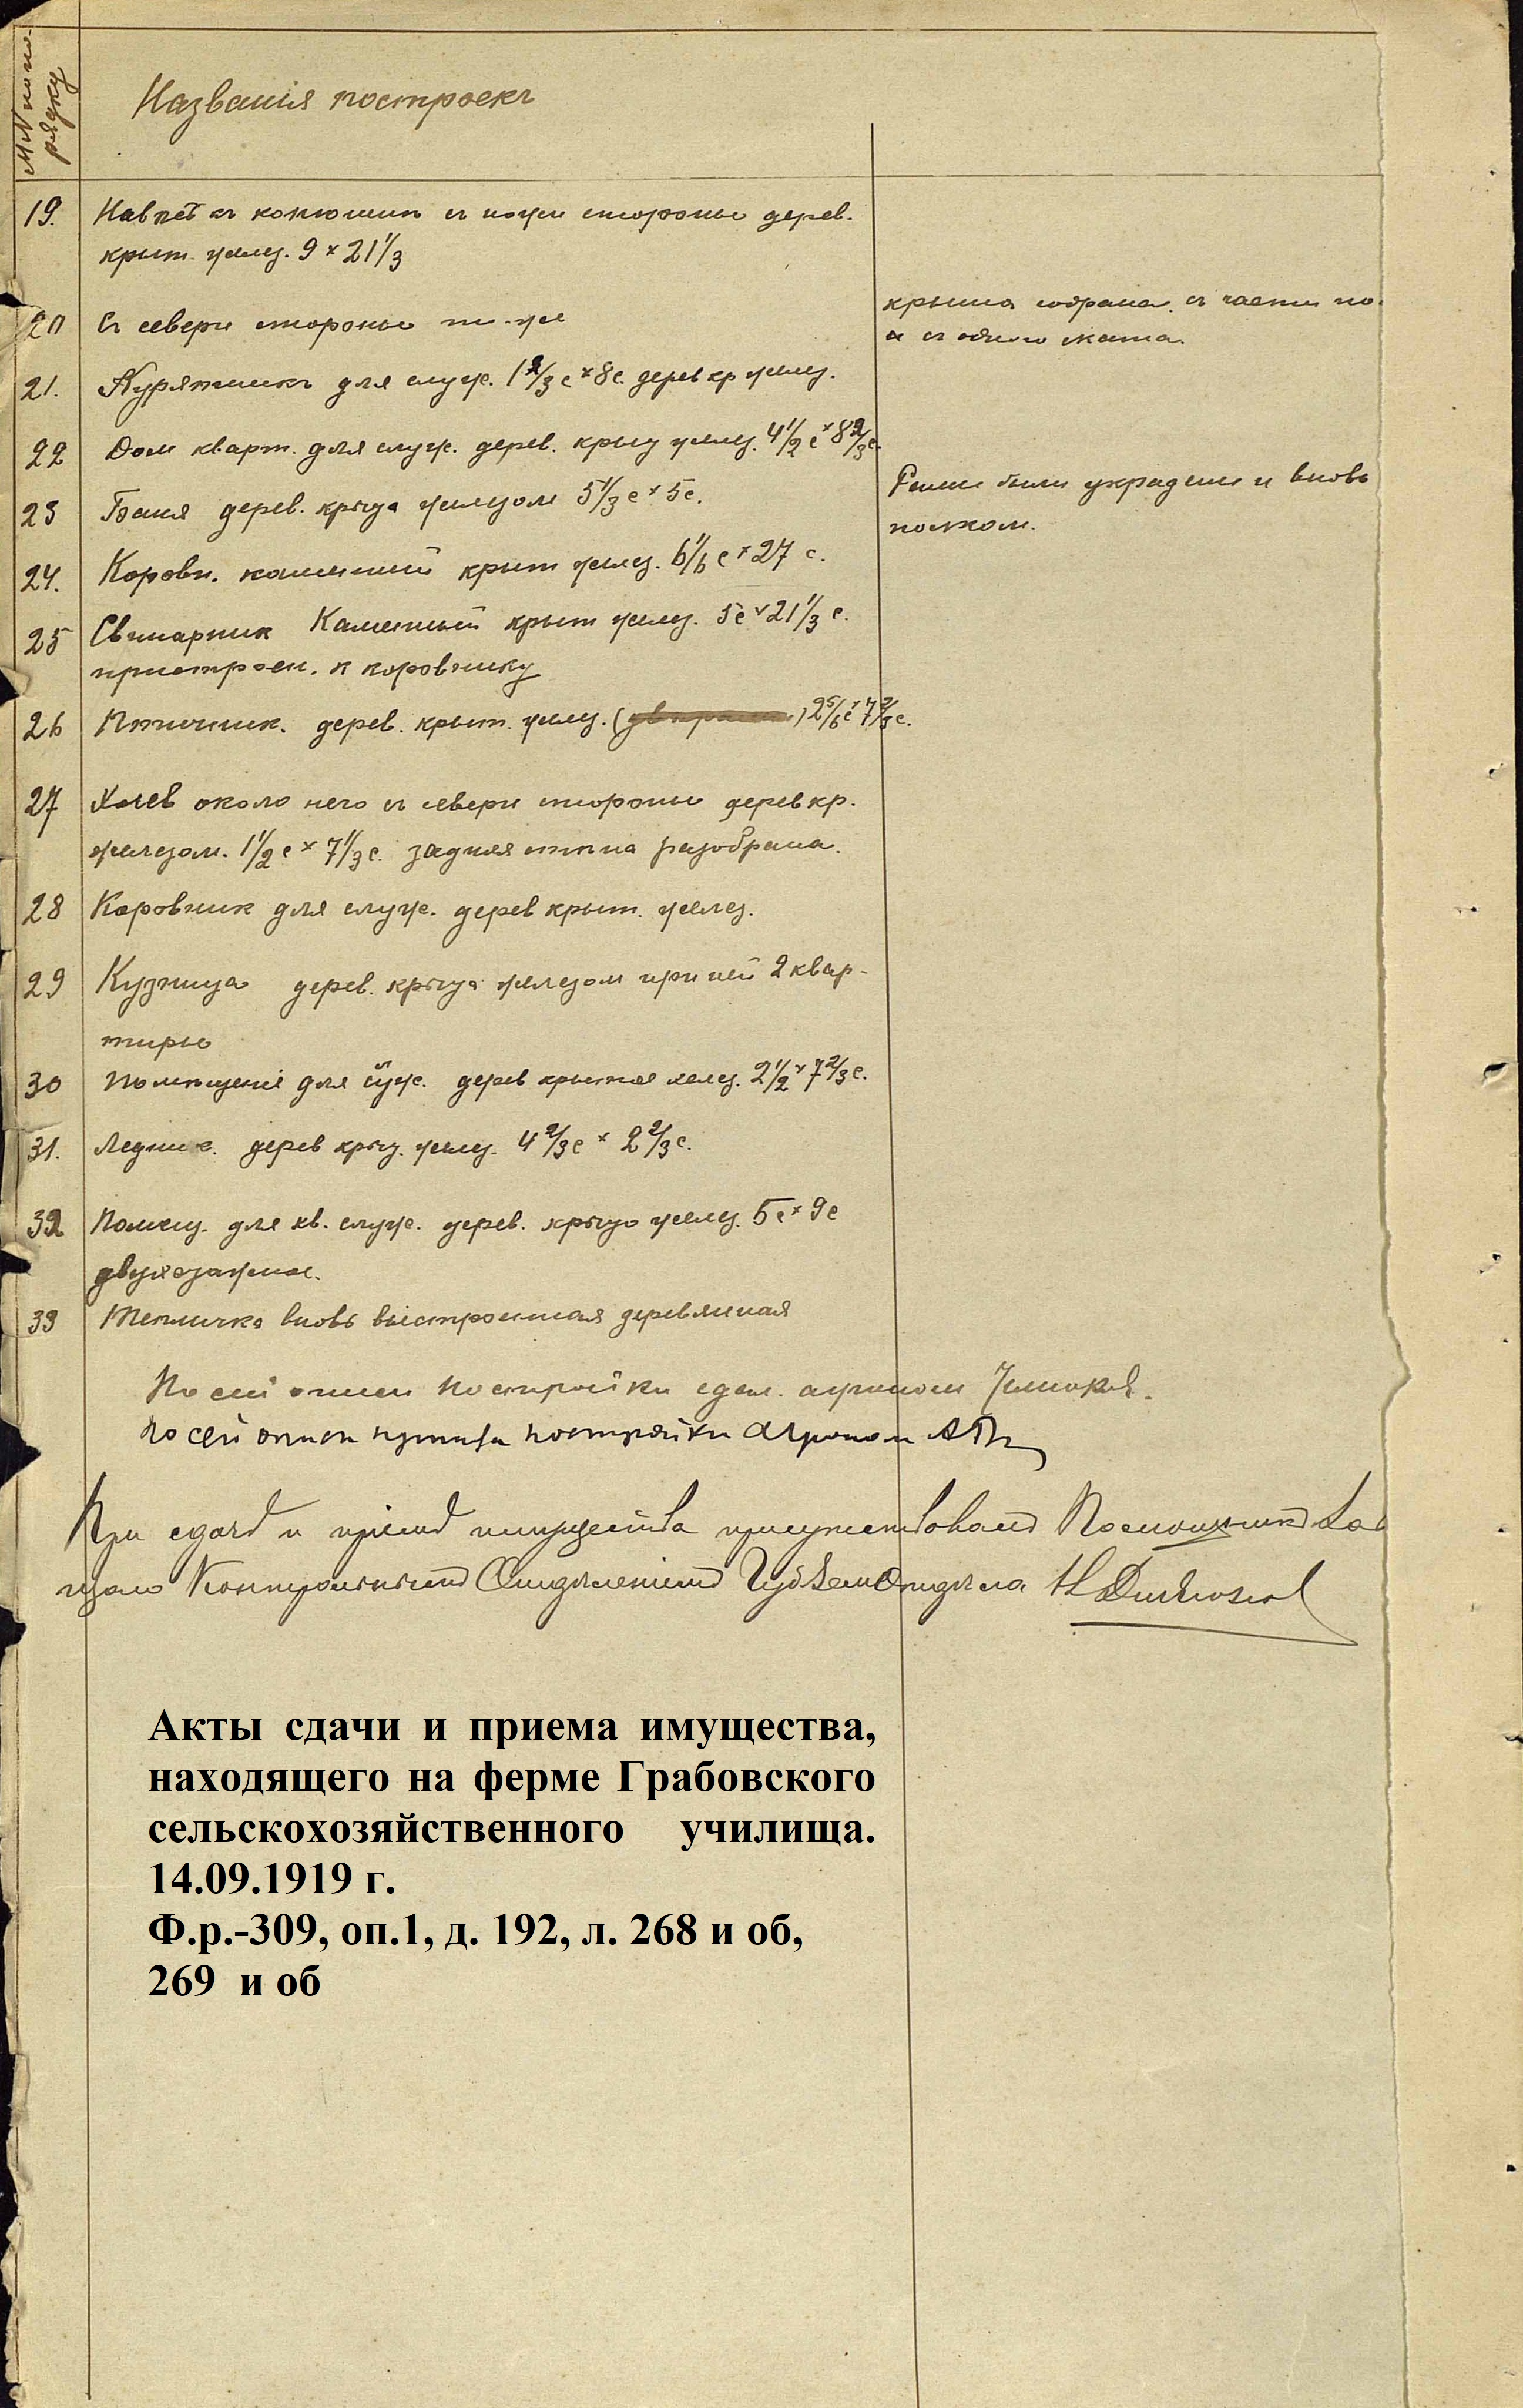 №№ по по-
рядку
Названія построекъ
19. Навѣс къ конюшнѣ съ южн стороны дерев.
крыт. желез. 9 × 21 1/3
20 Съ северн стороны т. же
крыша собрана с части по-
а с одного ската.
21. Курятникъ для служ. 1 2/3 с × 8 с. дерев кр желез.
22 Дом кварт. для служ. дерев. крыт желез. 4 1/2 с × 8 2/3 с.
23 Баня дерев. крыта железом 5 1/3 с × 5 с.
Рамы были украдены и вновь
полком.
24. Коровн. каменный крыт желез. 6 1/6 с × 27 с.
25 Свинарник Каменный крыт желез. 5 с × 21 1/3 с.
пристроен. к коровнику
26 Птичник. дерев. крыт. желез. ( ) 2 5/6 с × 7 2/3 с.
27 Хлев около него с северн стороны дерев кр.
железом. 1 1/2 с × 7 1/3 с. задняя стѣна разобрана.
28 Коровник для служ. дерев крыт. желез.
29 Кузница дерев. крыта железом при ней 2 квар-
тиры
30 Помѣщенiе для служ. дерев крытое желез. 2 1/2 × 7 2/3 с.
31. Ледник. дерев крыт. желез. 4 2/3 с × 2 2/3 с.
32 Помещ. для кв. служ. дерев. крыто желез. 5 с × 9 с
двухэтажное.
33 Тепличка вновь выстроенная деревянная
По сей описи постройки сдал. агроном
По сей описи принял постройки Агроном
При сдачѣ и пріемѣ имущества присутствовалъ Помощникъ Зав
Контрольнымъ Отдѣленіемъ ГубЗемОтдѣла
Акты сдачи и приема имущества,
находящего на ферме Грабовского
сельскохозяйственного училища.
14.09.1919 г.
Ф.р.-309, оп.1, д. 192, л. 268 и об,
269 и об